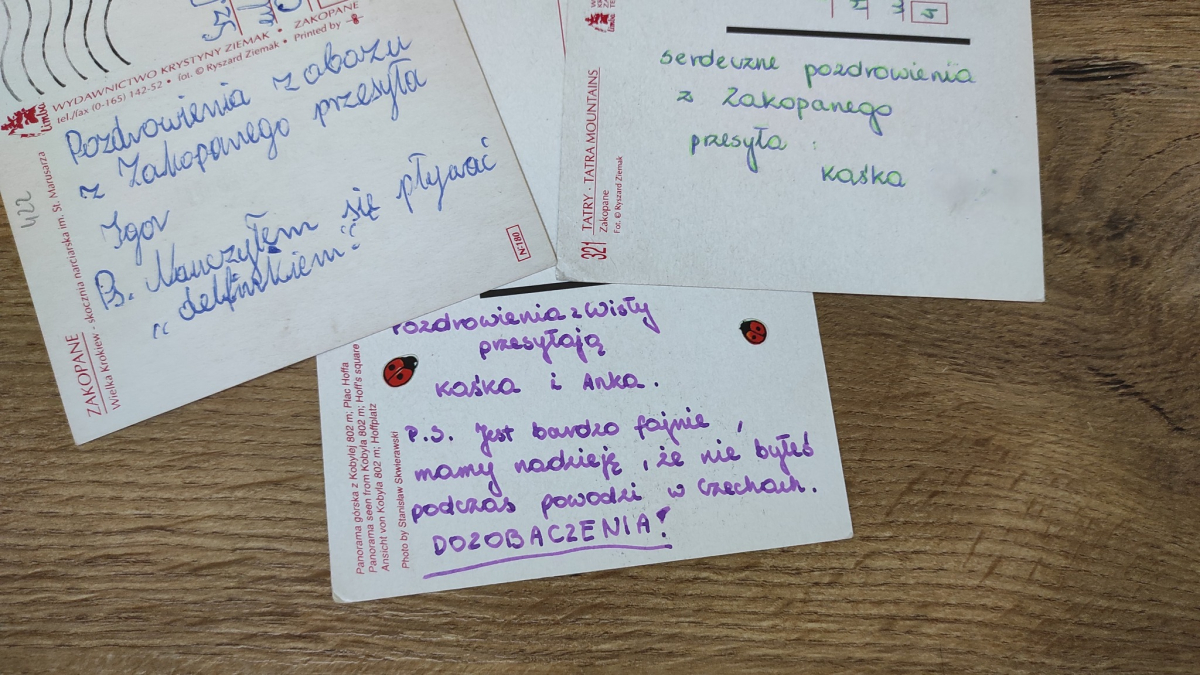 WYDAWNICTWO KRYSTYNY ZIEMAK • ZAKOPANE
tel./fax (0-165) 142-52 • fot. © Ryszard Ziemak • Printed by
Limba
Pozdrowienia z obozu
z Zakopanego przesyła
Igor
Ps. Nauczyłem się pływać
„delfinkiem”
422
ZAKOPANE
Wielka Krokiew - skocznia narciarska im. St. Marusarza
N-180
Limba
serdeczne pozdrowienia
z Zakopanego
przesyła :
kaśka
321 TATRY · TATRA MOUNTAINS
Zakopane
Fot. © Ryszard Ziemak
Pozdrowienia z Wisły
przesyłają
kaśka i Anka.
P.S. Jest bardzo fajnie,
mamy nadzieję, że nie byłeś
podczas powodzi w Czechach.
DOZOBACZENIA!
Panorama górska z Kobylej 802 m; Plac Hoffa
Panorama seen from Kobyla 802 m; Hoff's square
Ansicht von Kobyla 802 m; Hoffplatz
Photo by Stanisław Skwierawski